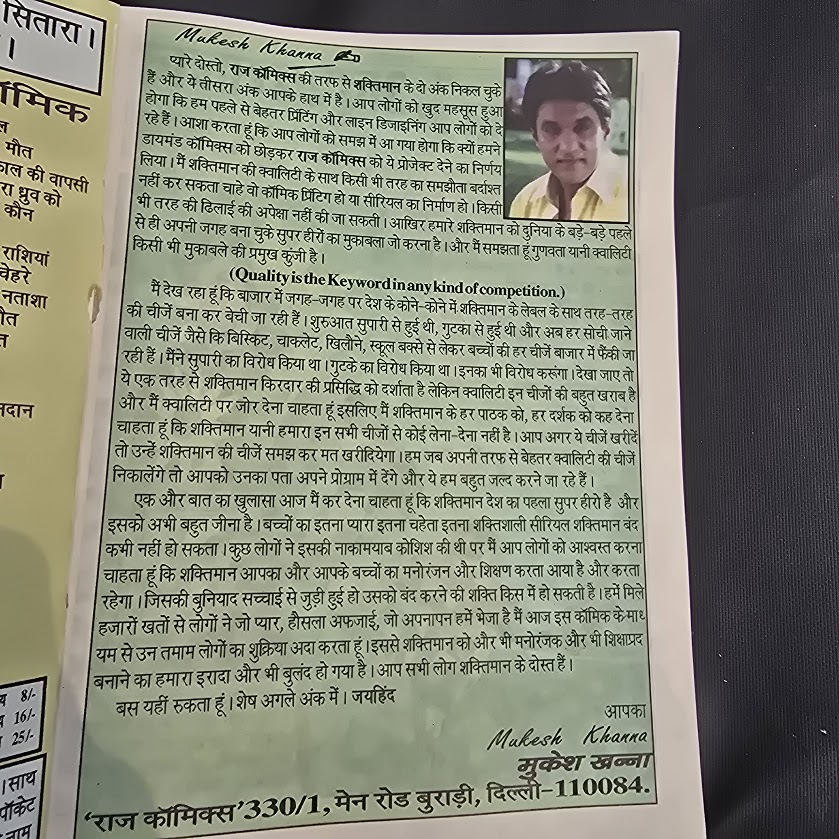 सितारा।
।
ॉमिक
ल
मौत
काल की वापसी
रा ध्रुव को
कौन
राशियां
चेहरे
नताशा
ति
त
नदान
8/-
16/-
25/-
।साथ
पॉकेट
नाम
Mukesh Khanna
प्यारे दोस्तो, राज कॉमिक्स की तरफ से शक्तिमान के दो अंक निकल चुके
हैं और ये तीसरा अंक आपके हाथ में है। आप लोगों को खुद महसूस हुआ
होगा कि हम पहले से बेहतर प्रिंटिंग और लाइन डिजाइनिंग आप लोगों को दे
रहे हैं। आशा करता हूं कि आप लोगों को समझ में आ गया होगा कि क्यों हमने
डायमंड कॉमिक्स को छोड़कर राज कॉमिक्स को ये प्रोजेक्ट देने का निर्णय
लिया। मैं शक्तिमान की क्वालिटी के साथ किसी भी तरह का समझौता बर्दाश्त
नहीं कर सकता चाहे वो कॉमिक प्रिंटिंग हो या सीरियल का निर्माण हो। किसी
भी तरह की ढिलाई की अपेक्षा नहीं की जा सकती। आखिर हमारे शक्तिमान को दुनिया के बड़े-बड़े पहले
से ही अपनी जगह बना चुके सुपर हीरों का मुकाबला जो करना है। और मैं समझता हूं गुणवता यानी क्वालिटी
किसी भी मुकाबले की प्रमुख कुंजी है।
(Quality is the Keyword in any kind of competition.)
मैं देख रहा हूं कि बाजार में जगह-जगह पर देश के कोने-कोने में शक्तिमान के लेबल के साथ तरह-तरह
की चीजें बना कर बेची जा रही हैं। शुरुआत सुपारी से हुई थी, गुटका से हुई थी और अब हर सोची जाने
वाली चीजें जैसे कि बिस्किट, चाकलेट, खिलौने, स्कूल बक्से से लेकर बच्चों की हर चीजें बाजार में फैंकी जा
रही हैं। मैंने सुपारी का विरोध किया था। गुटके का विरोध किया था। इनका भी विरोध करूंगा। देखा जाए तो
ये एक तरह से शक्तिमान किरदार की प्रसिद्धि को दर्शाता है लेकिन क्वालिटी इन चीजों की बहुत खराब है
और मैं क्वालिटी पर जोर देना चाहता हूं इसलिए मैं शक्तिमान के हर पाठक को, हर दर्शक को कह देना
चाहता हूं कि शक्तिमान यानी हमारा इन सभी चीजों से कोई लेना-देना नहीं है। आप अगर ये चीजें खरीदें
तो उन्हें शक्तिमान की चीजें समझ कर मत खरीदियेगा। हम जब अपनी तरफ से बेहतर क्वालिटी की चीजें
निकालेंगे तो आपको उनका पता अपने प्रोग्राम में देंगे और ये हम बहुत जल्द करने जा रहे हैं।
एक और बात का खुलासा आज मैं कर देना चाहता हूं कि शक्तिमान देश का पहला सुपर हीरो है और
इसको अभी बहुत जीना है। बच्चों का इतना प्यारा इतना चहेता इतना शक्तिशाली सीरियल शक्तिमान बंद
कभी नहीं हो सकता। कुछ लोगों ने इसकी नाकामयाब कोशिश की थी पर मैं आप लोगों को आश्वस्त करना
चाहता हूं कि शक्तिमान आपका और आपके बच्चों का मनोरंजन और शिक्षण करता आया है और करता
रहेगा। जिसकी बुनियाद सच्चाई से जुड़ी हुई हो उसको बंद करने की शक्ति किस में हो सकती है। हमें मिले
हजारों खतों से लोगों ने जो प्यार, हौसला अफजाई, जो अपनापन हमें भेजा है मैं आज इस कॉमिक के माध
यम से उन तमाम लोगों का शुक्रिया अदा करता हूं। इससे शक्तिमान को और भी मनोरंजक और भी शिक्षाप्रद
बनाने का हमारा इरादा और भी बुलंद हो गया है। आप सभी लोग शक्तिमान के दोस्त हैं।
बस यहीं रुकता हूं। शेष अगले अंक में। जयहिंद
आपका
Mukesh Khanna
मुकेश खन्ना
'राज कॉमिक्स' 330/1, मेन रोड बुराड़ी, दिल्ली-110084.